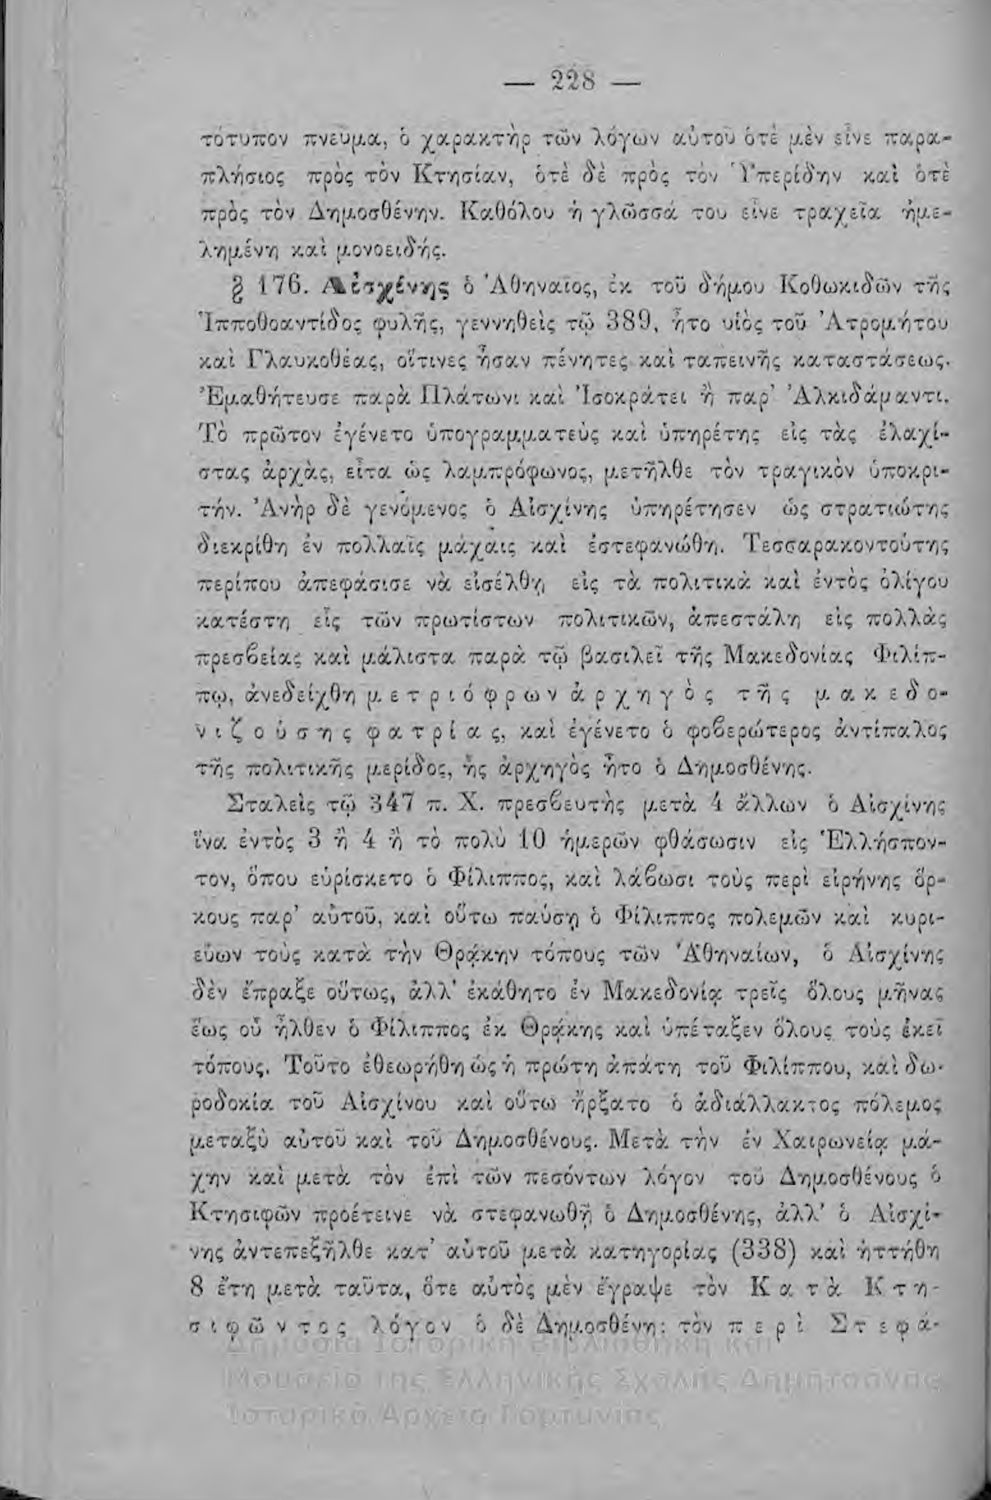 — 228 —
τότυπον πνεῦμα, ὁ χαρακτὴρ τῶν λόγων αὐτοῦ ὁτὲ μὲν εἶνε παρα-
πλήσιος πρὸς τὸν Κτησίαν, ὁτὲ δὲ πρὸς τὸν Ὑπερίδην καὶ ὁτὲ
πρὸς τὸν Δημοσθένην. Καθόλου ἡ γλῶσσά του εἶνε τραχεῖα ἠμε-
λημένη καὶ μονοειδής.
§ 176. Αἰσχίνης ὁ Ἀθηναῖος, ἐκ τοῦ δήμου Κοθωκιδῶν τῆς
Ἱπποθοαντίδος φυλῆς, γεννηθεὶς τῷ 389, ἦτο υἱὸς τοῦ Ἀτρομήτου
καὶ Γλαυκοθέας, οἵτινες ἦσαν πένητες καὶ ταπεινῆς καταστάσεως.
Ἐμαθήτευσε παρὰ Πλάτωνι καὶ Ἰσοκράτει ἢ παρ' Ἀλκιδάμαντι.
Τὸ πρῶτον ἐγένετο ὑπογραμματεὺς καὶ ὑπηρέτης εἰς τὰς ἐλαχί-
στας ἀρχάς, εἶτα ὡς λαμπρόφωνος, μετῆλθε τὸν τραγικὸν ὑποκρι-
τήν. Ἀνὴρ δὲ γενόμενος ὁ Αἰσχίνης ὑπηρέτησεν ὡς στρατιώτης
διεκρίθη ἐν πολλαῖς μάχαις καὶ ἐστεφανώθη. Τεσσαρακοντούτης
περίπου ἀπεφάσισε νὰ εἰσέλθῃ εἰς τὰ πολιτικὰ καὶ ἐντὸς ὀλίγου
κατέστη εἷς τῶν πρωτίστων πολιτικῶν, ἀπεστάλη εἰς πολλὰς
πρεσβείας καὶ μάλιστα παρὰ τῷ βασιλεῖ τῆς Μακεδονίας Φιλίπ-
πῳ, ἀνεδείχθη μετριόφρων ἀρχηγὸς τῆς μακεδο-
νιζούσης φατρίας, καὶ ἐγένετο ὁ φοβερώτερος ἀντίπαλος
τῆς πολιτικῆς μερίδος, ἧς ἀρχηγὸς ἦτο ὁ Δημοσθένης.
Σταλεὶς τῷ 347 π. Χ. πρεσβευτὴς μετὰ 4 ἄλλων ὁ Αἰσχίνης
ἵνα ἐντὸς 3 ἢ 4 ἢ τὸ πολὺ 10 ἡμερῶν φθάσωσιν εἰς Ἑλλήσπον-
τον, ὅπου εὑρίσκετο ὁ Φίλιππος, καὶ λάβωσι τοὺς περὶ εἰρήνης ὅρ-
κους παρ' αὐτοῦ, καὶ οὕτω παύσῃ ὁ Φίλιππος πολεμῶν καὶ κυρι-
εύων τοὺς κατὰ τὴν Θρᾴκην τόπους τῶν Ἀθηναίων, ὁ Αἰσχίνης
δὲν ἔπραξε οὕτως, ἀλλ' ἐκάθητο ἐν Μακεδονίᾳ τρεῖς ὅλους μῆνας
ἕως οὗ ἦλθεν ὁ Φίλιππος ἐκ Θρᾴκης καὶ ὑπέταξεν ὅλους τοὺς ἐκεῖ
τόπους. Τοῦτο ἐθεωρήθη ὡς ἡ πρώτη ἀπάτη τοῦ Φιλίππου, καὶ δω-
ροδοκία τοῦ Αἰσχίνου καὶ οὕτω ἤρξατο ὁ ἀδιάλλακτος πόλεμος
μεταξὺ αὐτοῦ καὶ τοῦ Δημοσθένους. Μετὰ τὴν ἐν Χαιρωνείᾳ μά-
χην καὶ μετὰ τὸν ἐπὶ τῶν πεσόντων λόγον τοῦ Δημοσθένους ὁ
Κτησιφῶν προέτεινε νὰ στεφανωθῇ ὁ Δημοσθένης, ἀλλ' ὁ Αἰσχί-
νης ἀντεπεξῆλθε κατ' αὐτοῦ μετὰ κατηγορίας (338) καὶ ἡττήθη
8 ἔτη μετὰ ταῦτα, ὅτε αὐτὸς μὲν ἔγραψε τὸν Κατὰ Κτη-
σιφῶντος λόγον ὁ δὲ Δημοσθένης τὸν περὶ Στεφά-
Δημόσια Ιστορική Βιβλιοθήκη και
Μουσείο της Ελληνικής Σχολής Δημητσάνας
Ιστορικό Αρχείο Γορτυνίας